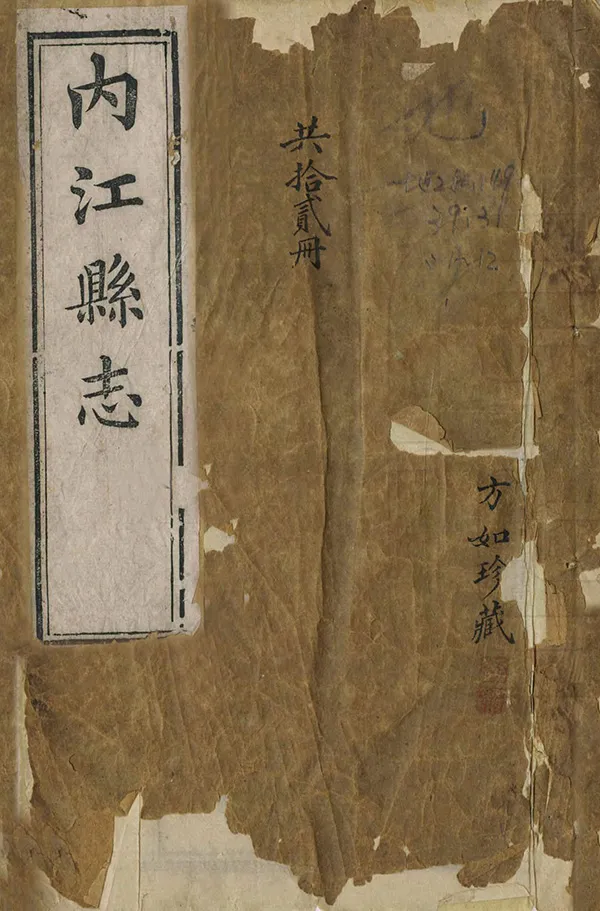 内江縣志
共拾貳冊
方如珍藏
地